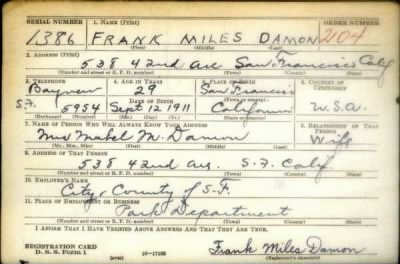 SERIAL NUMBER 1. NAME (Print) ORDER NUMBER
1386 FRANK MILES DAMON 2104
(First) (Middle) (Last)
2. ADDRESS (Print)
538 42nd Ave San Francisco Calif
(Number and street or R. F. D. number) (Town) (County) (State)
3. TELEPHONE 4. AGE IN YEARS 5. PLACE OF BIRTH 6. COUNTRY OF CITIZENSHIP
Bayview 29 San Francisco
S.F. DATE OF BIRTH (Town or county)
5954 Sept 12 1911 California U.S.A.
(Exchange) (Number) (Mo.) (Day) (Yr.) (State or country)
7. NAME OF PERSON WHO WILL ALWAYS KNOW YOUR ADDRESS 8. RELATIONSHIP OF THAT PERSON
Mrs Mabel M. Damon Wife
(Mr., Mrs., Miss) (First) (Middle) (Last)
9. ADDRESS OF THAT PERSON
538 42nd Ave. S.F. Calif.
(Number and street or R. F. D. number) (Town) (County) (State)
10. EMPLOYER'S NAME
City & County of S.F.
11. PLACE OF EMPLOYMENT OR BUSINESS
Park Department
(Number and street or R. F. D. number) (Town) (County) (State)
I AFFIRM THAT I HAVE VERIFIED ABOVE ANSWERS AND THAT THEY ARE TRUE.
REGISTRATION CARD
D. S. S. Form 1 (over) Frank Miles Damon
(Registrant's signature)